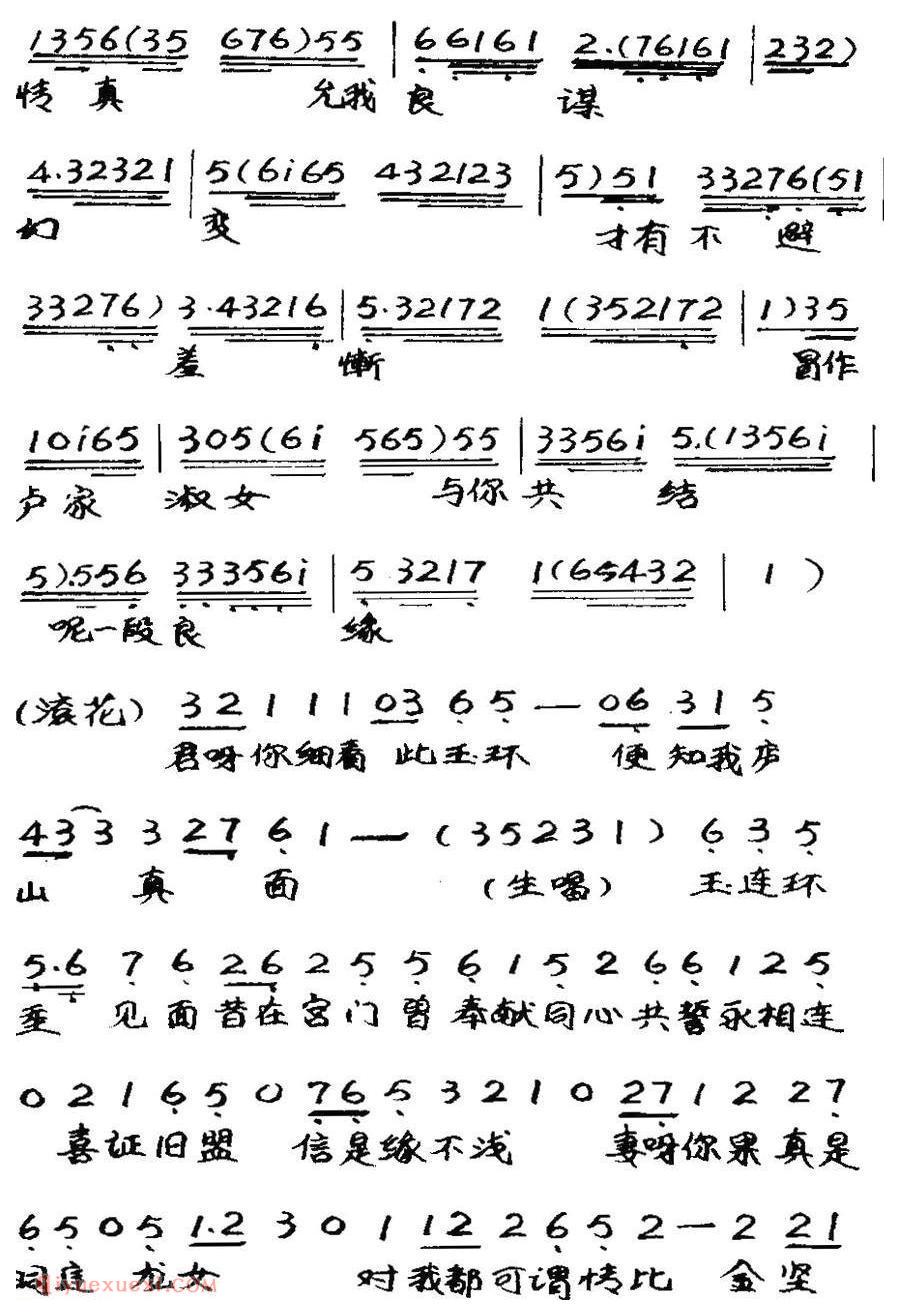 1356(35 676)55 | 66161 2.(76161 | 232)
情真 允我良 谋
4.32321 | 5(6i65 432123 | 5)51 33276(51 |
幻 变 才有不避
33276) 3.43216 | 5.32172 1(352172 | 1)35
羞 惭 冒作
10i65 | 305(6i 565)55 | 3356i 5.(1356i |
卢家 淑女 与你共 结
5).556 33356i | 5 3217 1(65432 | 1 )
呢一段良 缘
(滚花) 32 1 1 1 03 6 5 — 06 31 5
君呀你细看 此玉环 便知我庐
43 3 3 27 6 1 — (35231) 6 3 5
山 真 面 (生唱) 玉连环
5.6 7 6 2.6 2 5 5 6 1 5 2 6 6 1 2 5
重 见面昔在宫门曾奉献同心共誓永相连
0 2 1 6 5 0 76 5 3 2 1 0 27 1 2 2 7
喜证旧盟 信是缘不浅 妻呀你果真是
6 5 0 5 1.2 3 0 1 12 2 6 5 2 — 2 21
洞庭 龙女 对我都可谓情比 金坚